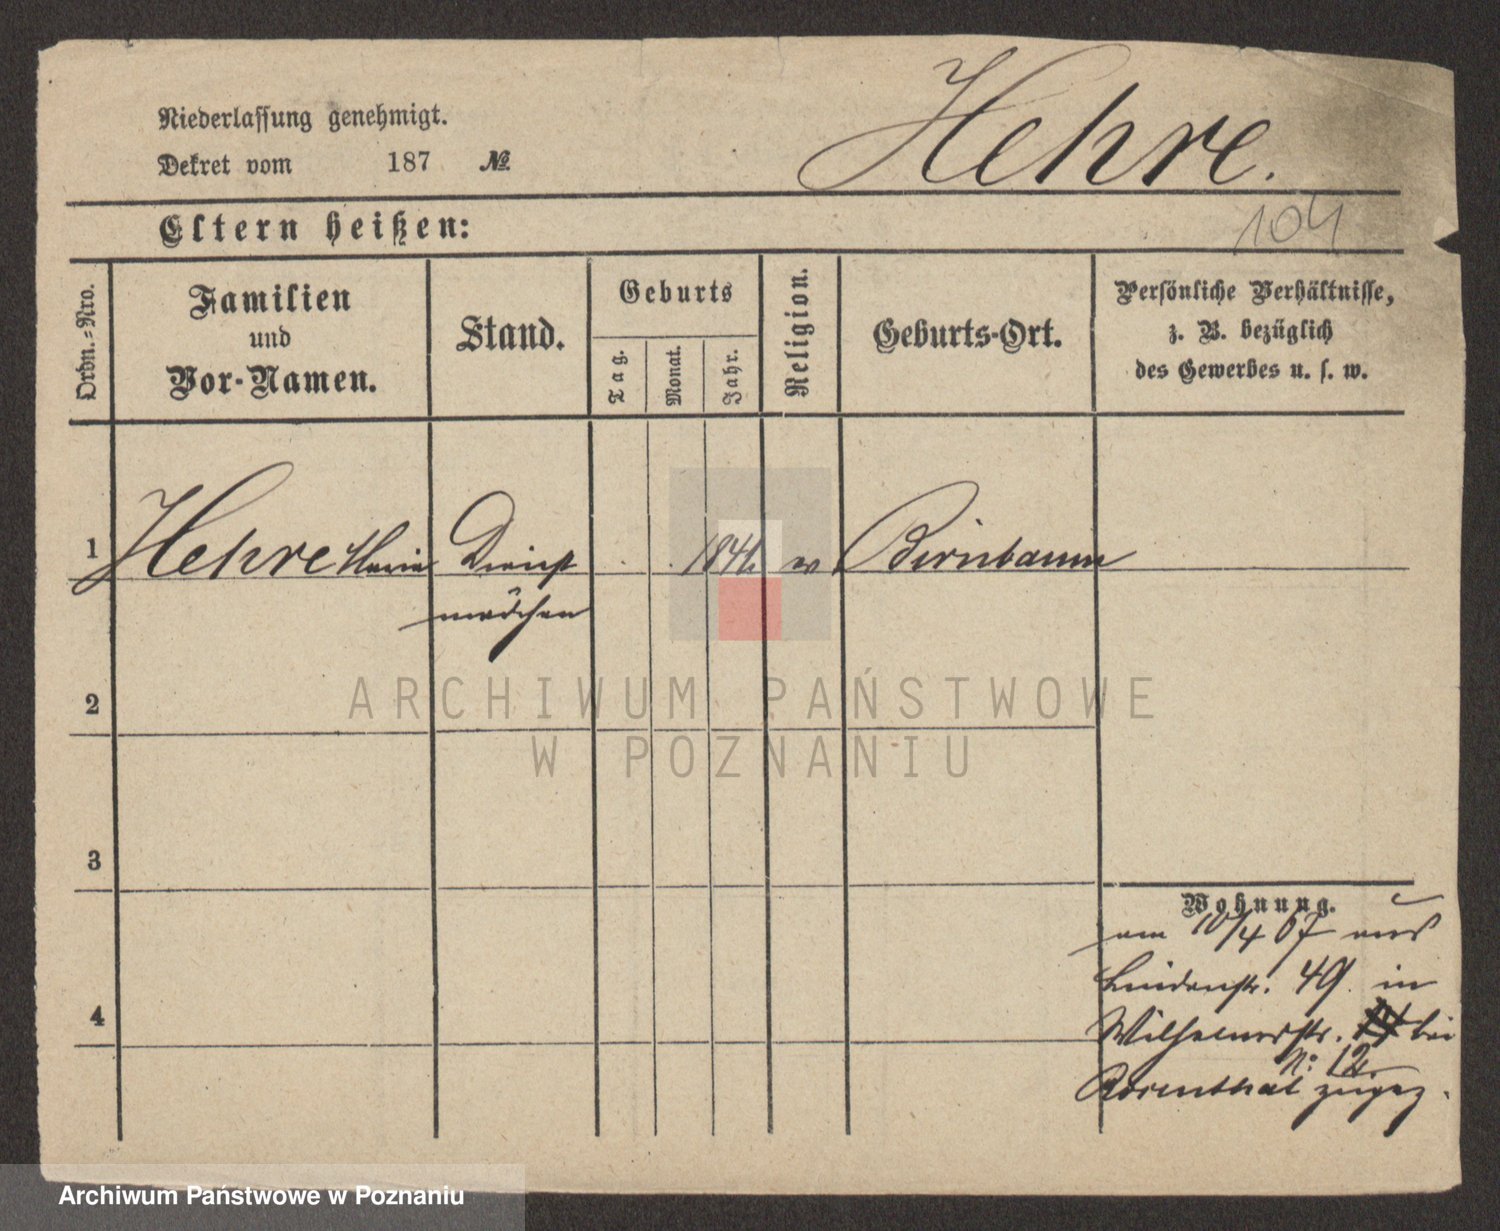 Niederlassung genehmigt.
Dekret vom 187 №
Hehre.
104
Eltern heißen:
Ordn.-Nro.
Familien
und
Vor-Namen.
Stand.
Geburts
Tag.
Monat.
Jahr.
Religion.
Geburts-Ort.
Persönliche Verhältnisse,
z. B. bezüglich
des Gewerbes u. s. w.
1 Hehre Marie Dienst 184 Birnbaum
mädchen
2
3
4
Wohnung.
am 10/4 67 aus
Lindenstr. 49. in
Wilhelmsstr. bei
N: 12.
Rosenthal zugez.
ARCHIWUM PAŃSTWOWE
W POZNANIU
Archiwum Państwowe w Poznaniu